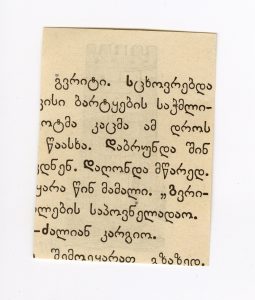 გვრიტი. სცხოვრებდა
კისი ბარტყების საქმლი-
ოტმა კაცმა ამ დროს
წაასხა. დაბრუნდა შინ
კდნენ. დაღონდა მწარედ.
ყარა წინ მამალი. „გვრი-
ლების საპოვნელადაო.
-ძალიან კარგიო.
შემოეყარათ გზაზედ.